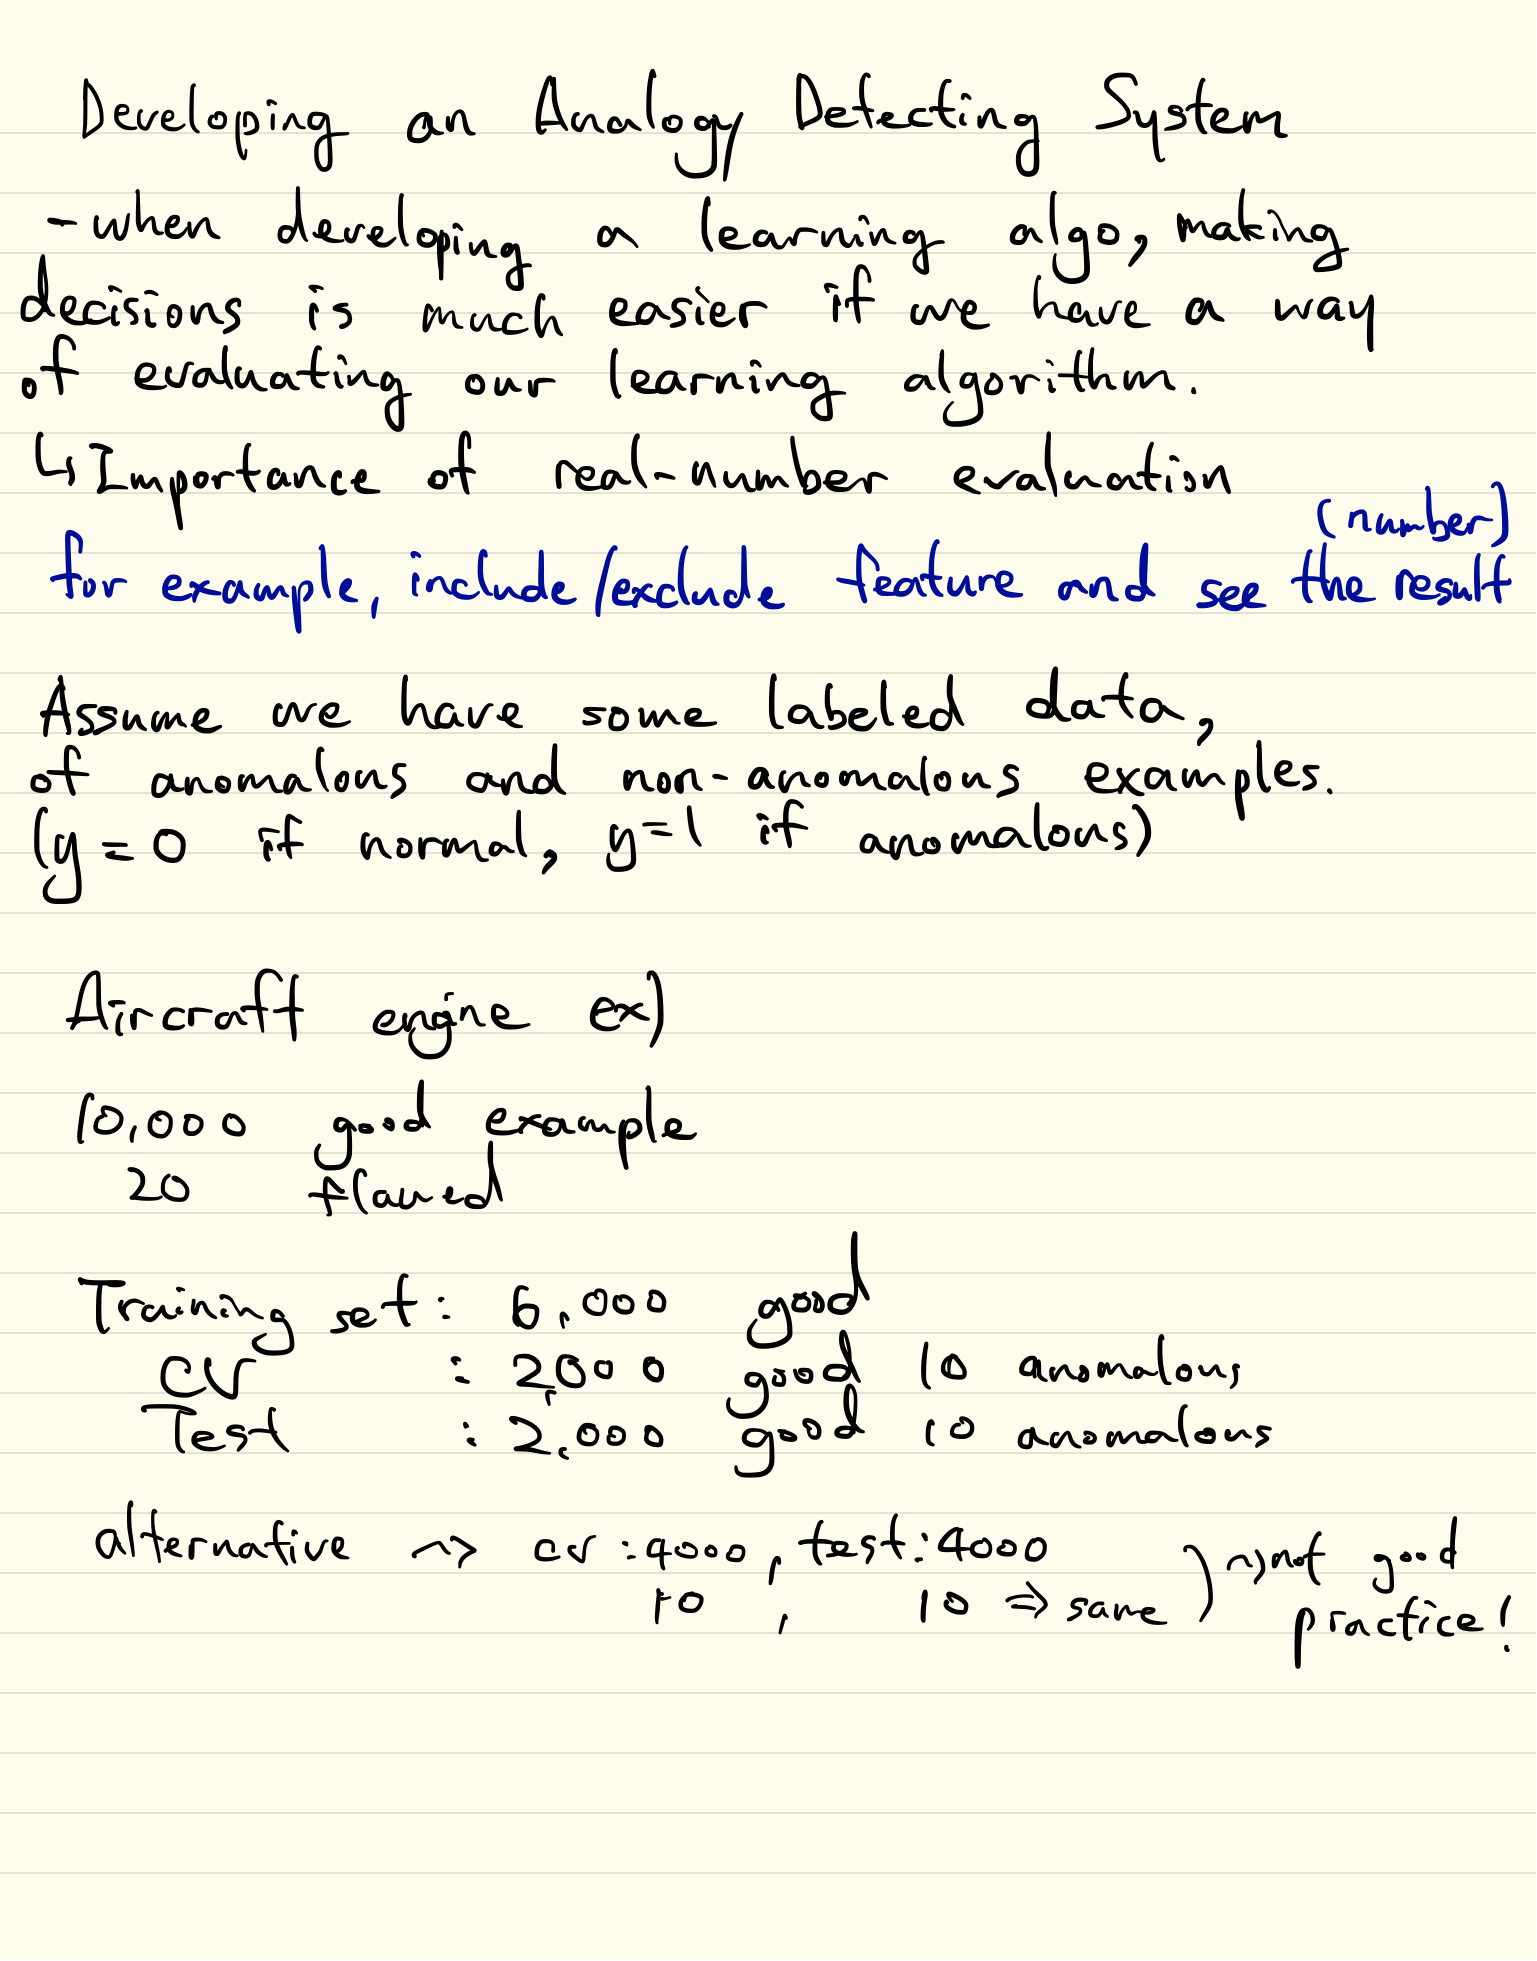 Developing an Analogy Detecting System
- when developing a learning algo, making
decisions is much easier if we have a way
of evaluating our learning algorithm.
↳ Importance of real-number evaluation
(number)
for example, include/exclude feature and see the result
Assume we have some labeled data,
of anomalous and non-anomalous examples.
(y = 0 if normal, y=1 if anomalous)
Aircraft engine ex)
10,000 good example
20 flawed
Training set: 6,000 good
CV : 2,000 good 10 anomalous
Test : 2,000 good 10 anomalous
alternative ~> cv : 4000, test: 4000
10 , 10 => same ) ~> not good
practice!